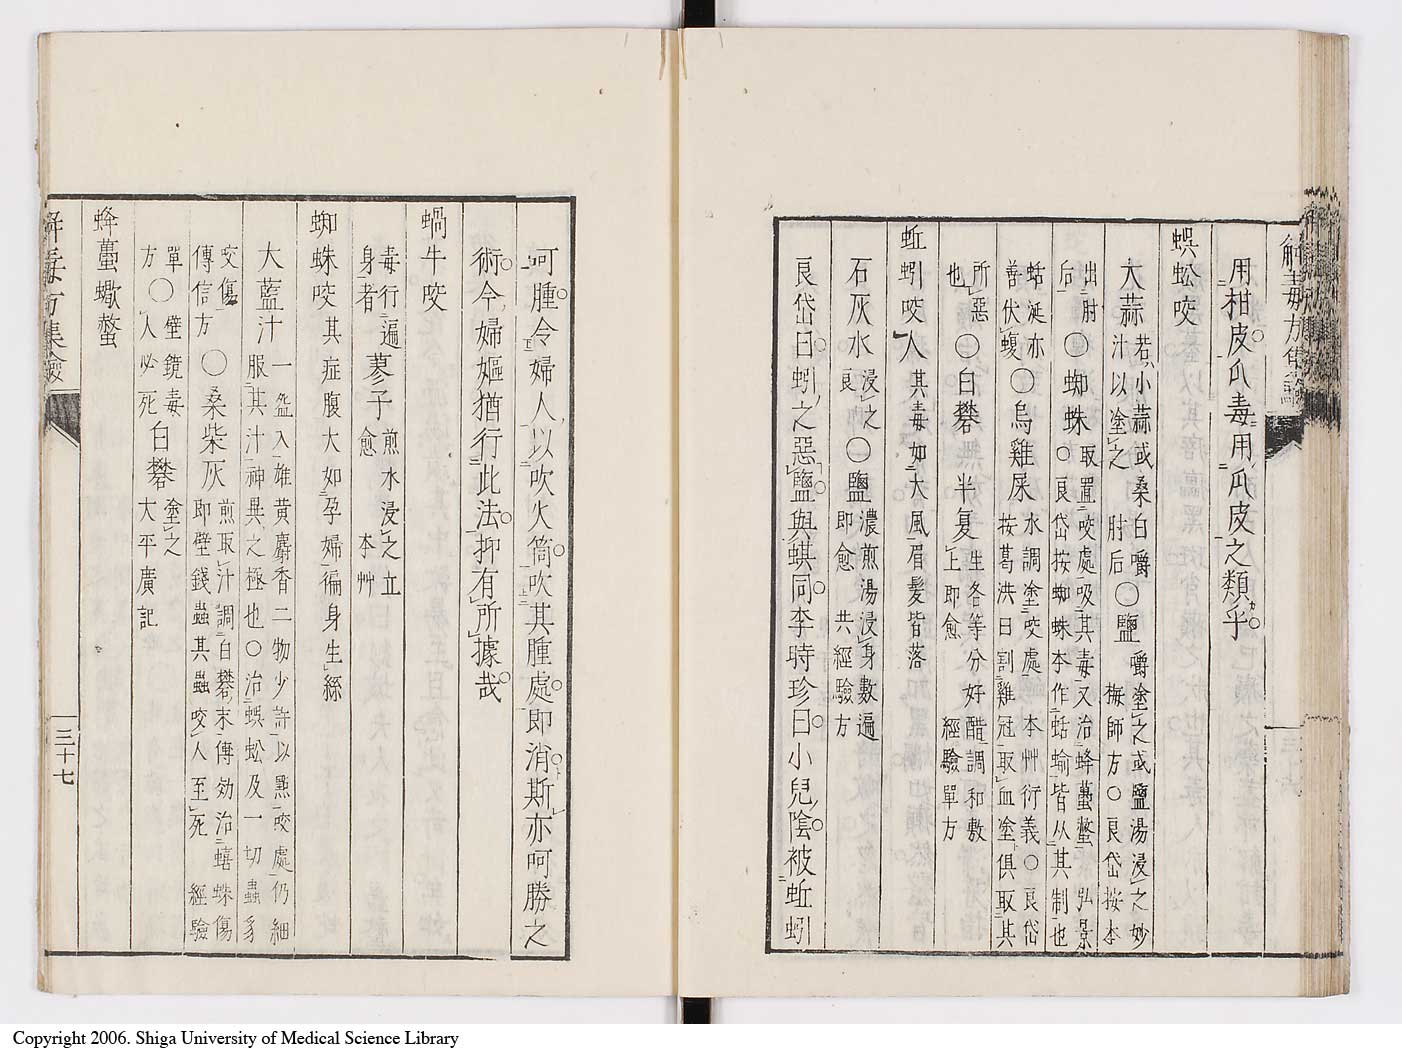 用柑皮瓜毒用瓜皮之類乎
蜈蚣咬
大蒜 若小蒜或桑白嚼
汁以塗之 肘后 〇鹽 嚼塗之或鹽湯浸之妙
梅師方〇良岱按本
出肘
后 〇蜘蛛 取置咬處吸其毒又治蜂蠆螫 弘景
〇良岱按蜘蛛本作蛞蝓皆从其制也
蛞蜒亦
善伏蝮 〇烏雞屎 水調塗咬處 本艸衍義〇良岱
按葛洪曰割雞冠取血塗俱取其
所惡
也 〇白礬 半夏 生各等分好醋調和敷
上即愈 經驗單方
蚯蚓咬人 其毒如大風眉髮皆落
石灰水 浸之
良 〇鹽 濃煎湯浸身數遍
即愈 共經驗方
良岱曰蚓之惡鹽與蜞同李時珍曰小兒陰被蚯蚓
呵腫令婦人以吹火筒吹其腫處即消斯亦呵勝之
術今婦嫗猶行此法抑有所據哉
蝸牛咬
毒行遍
身者 蓼子 煎水浸之立
愈 本艸
蜘蛛咬 其症腹大如孕婦徧身生絲
大藍汁 一盌入雄黃麝香二物少許以點咬處仍細
服其汁神異之極也〇治蜈蚣及一切蟲豸
咬傷
傳信方 〇桑柴灰 煎取汁調白礬末傅効治蟢蛛傷
即壁錢蟲其蟲咬人至死 經驗
單〇壁鏡毒
方 人必死 白礬 塗之
太平廣記
蜂蠆蠍螫
三十七